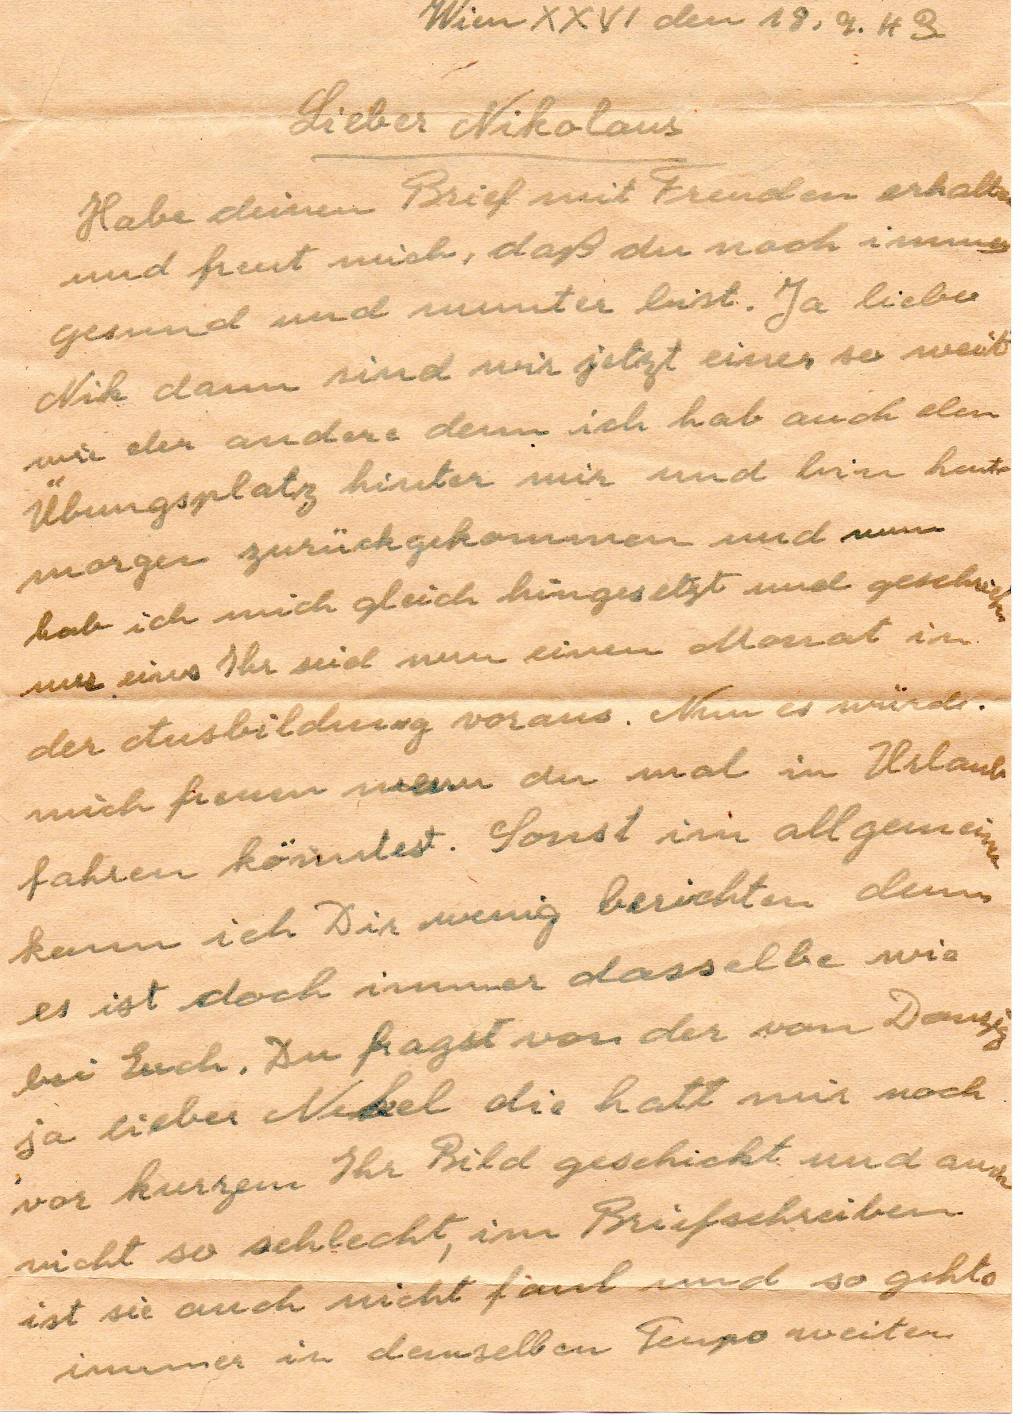 Wien XXVI den 18. 9. 43
Lieber Nikolaus
Habe deinen Brief mit Freuden erhalten
und freut mich, daß du noch immer
gesund und munter bist. Ja lieber
Nik dann sind wir jetzt einer so weit
wie der andere denn ich hab auch den
Übungsplatz hinter mir und bin heute
morgen zurückgekommen und nun
hab ich mich gleich hingesetzt und geschrieben
nur eins Ihr seid nun einen Monat in
der Ausbildung voraus. Nun es würde.
mich freuen wenn du mal in Urlaub
fahren könntest. Sonst im allgemeinen
kann ich Dir wenig berichten denn
es ist doch immer dasselbe wie
bei Euch. Du fragst von der von Danzig
ja lieber Nikel die hatt mir noch
vor kurzem Ihr Bild geschickt und auch
nicht so schlecht, im Briefschreiben
ist sie auch nicht faul und so gehts
immer in demselben Tempo weiter